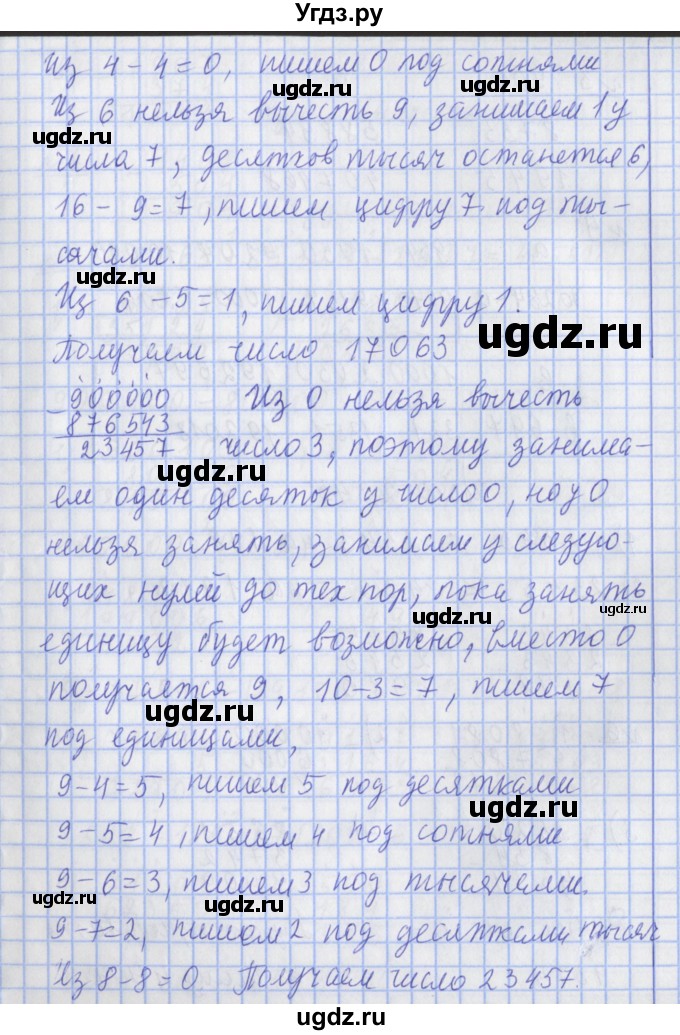 Угдз.ру
Из 4 - 4 = 0, пишем 0 под сотнями
Из 6 нельзя вычесть 9, занимаем 1 у
числа 7, десятков тысяч останется 6,
16 - 9 = 7, пишем цифру 7 под ты-
сячами.
Из 6 - 5 = 1, пишем цифру 1.
Получаем число 17063
- 900000 Из 0 нельзя вычесть
876543
23457 число 3, поэтому занима-
ем один десяток у число 0, но у 0
нельзя занять, занимаем у следую-
щих нулей до тех пор, пока занять
единицу будет возможно, вместо 0
получается 9, 10 - 3 = 7, пишем 7
под единицами,
9 - 4 = 5, пишем 5 под десятками
9 - 5 = 4, пишем 4 под сотнями
9 - 6 = 3, пишем 3 под тысячами.
9 - 7 = 2, пишем 2 под десятками тысяч
Из 8 - 8 = 0 Получаем число 23457.
ugdz.ru
ugdz.ru
ugdz.ru
ugdz.ru
ugdz.ru
ugdz.ru
ugdz.ru
ugdz.ru
ugdz.ru
ugdz.ru
ugdz.ru
ugdz.ru
ugdz.ru